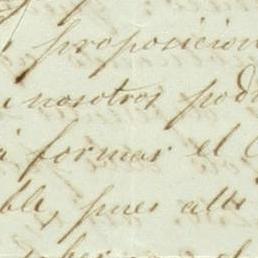 proposicion
nosotros pod
á formar el C
ble, pues alli